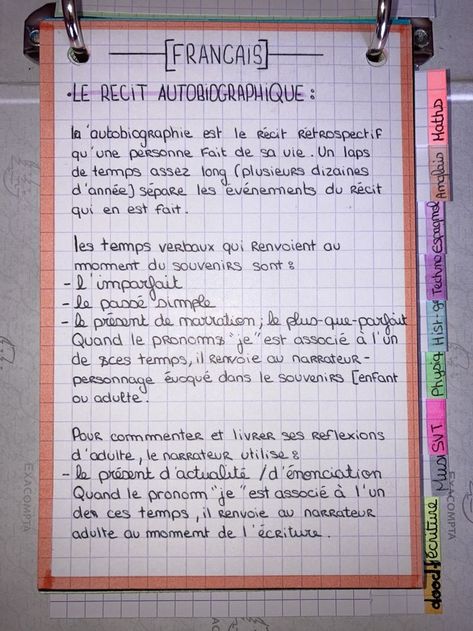 [FRANCAIS]
• LE RECIT AUTOBIOGRAPHIQUE :
la 'autobiographie est le récit rétrospectif
qu'une personne fait de sa vie. Un laps
de temps assez long (plusieurs dizaines
d'année) sépare les événements du récit
qui en est fait.
les temps verbaux qui renvoient au
moment du souvenirs sont :
- l'imparfait
- le passé simple
- le présent de narration ; le plus-que-parfait
Quand le pronoms "je" est associé à l'un
de ces temps, il renvoie au narrateur-
personnage évoqué dans le souvenirs [enfant
ou adulte.
Pour commenter et livrer ses reflexions
d'adulte, le narrateur utilise :
- le présent d'actualité / d'énonciation
Quand le pronom "je" est associé à l'un
de ces temps, il renvoie au narrateur
adulte au moment de l'écriture.
Maths
Anglais
Espagnol
Techno
Hist-g
Physiq
SVT
Musi
écriture
EXACOMPTA
EXACOMPTA